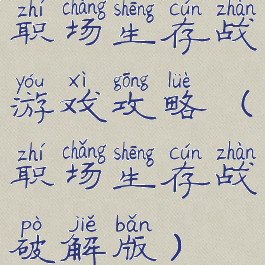 zhí chǎng shēng cún zhàn
职场生存战
yóu xì gōng lüè
游戏攻略（
zhí chǎng shēng cún zhàn
职场生存战
pò jiě bǎn
破解版）